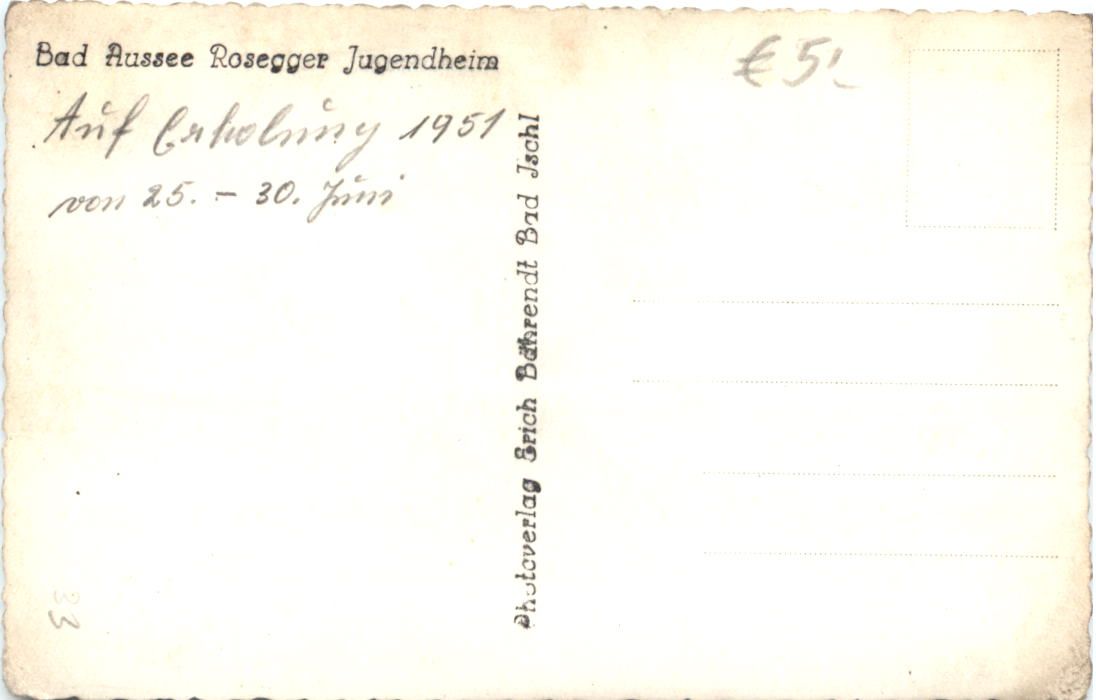 Bad Aussee Rosegger Jugendheim
€ 5.-
Auf Erholung 1951
von 25. – 30. Juni
Photoverlag Erich Bährendt Bad Jschl
33